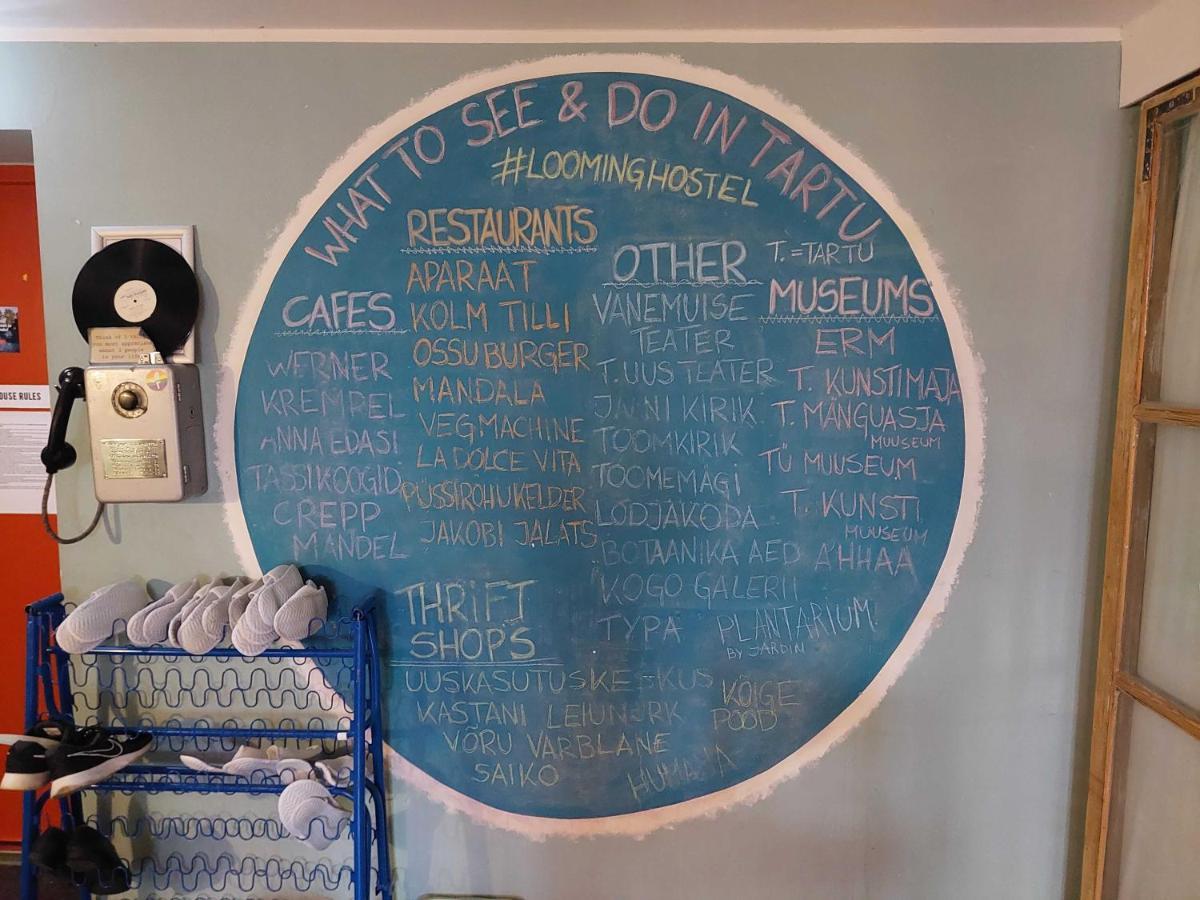 WHAT TO SEE & DO IN TARTU
#LOOMINGHOSTEL
CAFES
WERNER
KREMPEL
ANNA EDASI
TASSIKOOGID
CREPP
MANDEL
RESTAURANTS
APARAAT
KOLM TILLI
OSSU BURGER
MANDALA
VEGMACHINE
LA DOLCE VITA
PÜSSIROHUKELDER
JAKOBI JALATS
OTHER
VANEMUISE
TEATER
T. UUS TEATER
JAANI KIRIK
TOOMKIRIK
TOOMEMÄGI
LODJAKODA
BOTAANIKA AED
KOGO GALERII
TYPA
PLANTARIUM
BY JARDIN
T. = TARTU
MUSEUMS
ERM
T. KUNSTIMAJA
T. MÄNGUASJA
MUUSEUM
TÜ MUUSEUM
T. KUNSTI
MUUSEUM
AHHAA
THRIFT
SHOPS
UUSKASUTUSKESKUS
KASTANI LEIUNURK
VÕRU VARBLANE
SAIKO
KÕIGE
POOD
HUMANA
OUSE RULES